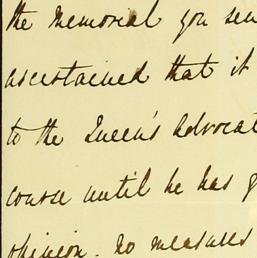 the Memorial you sen
ascertained that it
to the Queen's Advocat
course until he has g
opinion. no measures